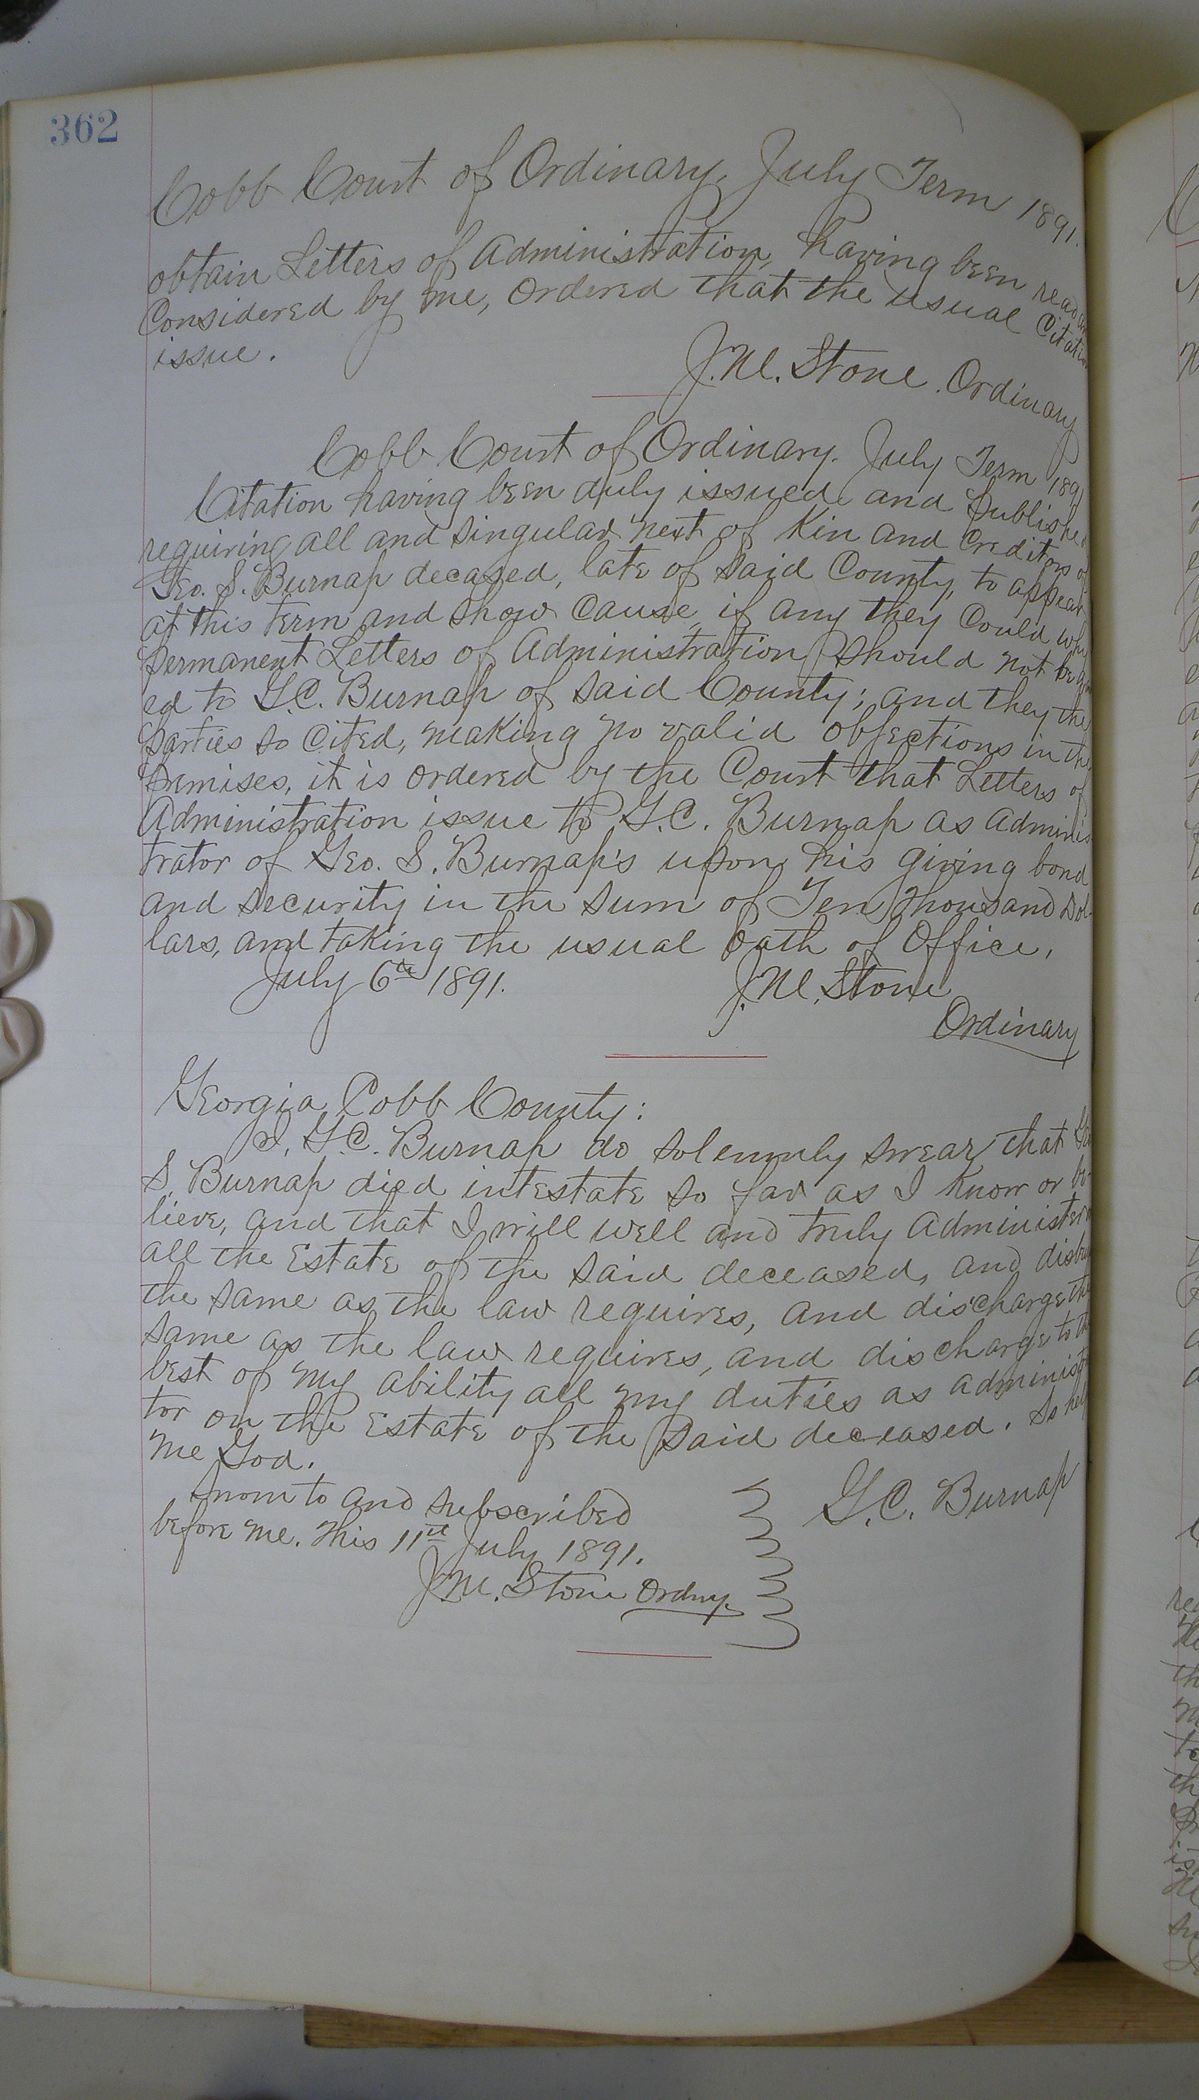 362
Cobb Court of Ordinary, July Term 1891.
obtain Letters of Administration, having been read
Considered by me, Ordered that the usual Citation
issue.
J. M. Stone. Ordinary
Cobb Court of Ordinary. July Term 1891
Citation having been duly issued and Publishe
requiring all and singular next of Kin and Creditors of
Geo. S. Burnap decased, late of said County, to appear
at this term and show cause, if any they could why
permanent Letters of Administration should not be
ed to G.C. Burnap of said County; and they the
parties so cited, making no valid objections in the
premises, it is ordered by the Court that Letters of
Administration issue to G.C. Burnap as Adminis
trator of Geo. S. Burnap's upon his giving bond
and security in the sum of Ten Thousand Dol-
lars, and taking the usual oath of Office,
July 6th 1891.
J. M. Stone
Ordinary
Georgia, Cobb County:
I, G.C. Burnap do solemnly swear that
S. Burnap died intestate so far as I know or be
lieve, and that I will well and truly administer
all the Estate of the said deceased, and disbu
the same as the law requires, and discharge the
same as the law requires, and discharge to the
best of my ability all my duties as administ
tor on the Estate of the said deceased. So help
me God.
Sworn to and subscribed
before me. This 11th July 1891.
J. M. Stone Ordny.
G. C. Burnap